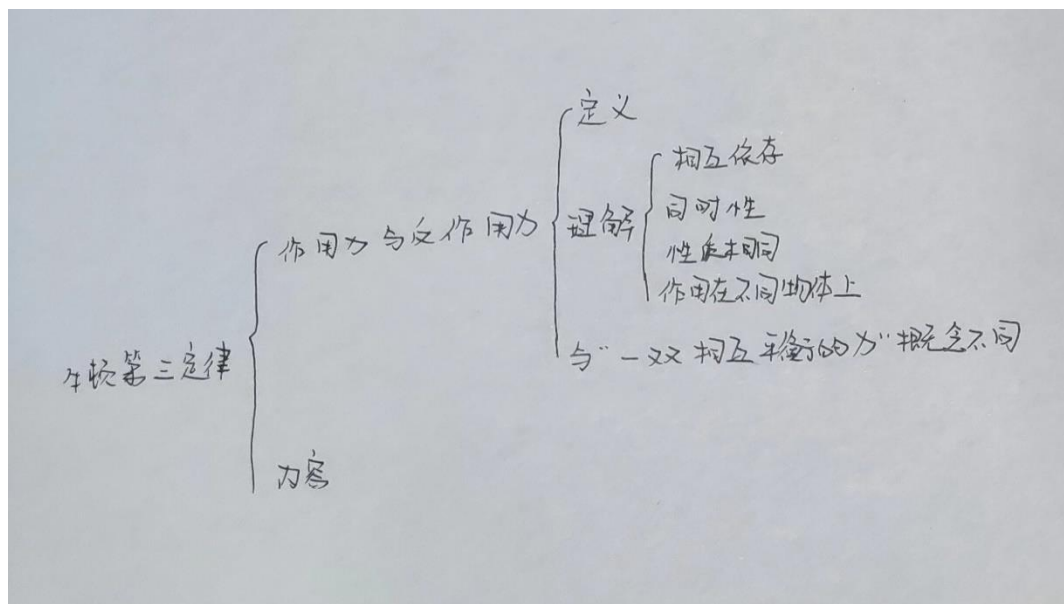 牛顿第三定律
作用力与反作用力
定义
理解
相互依存
同时性
性质相同
作用在不同物体上
与"一对相互平衡的力"概念不同
内容